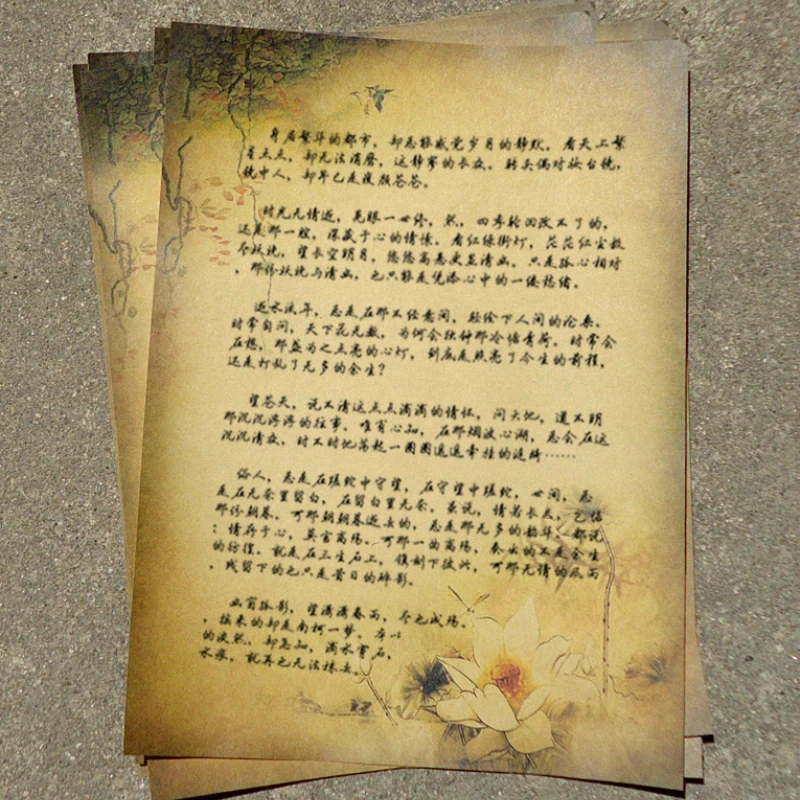 身居繁华的都市，却总能感觉岁月的静默，看天上繁
星点点，却无法消磨，这静寥的长夜。转头偶对妆台镜，
镜中人，却早已是鬓颜苍苍。
时光无情逝，晃眼一世终，然，四季轮回改不了的，
还是那一腔，深藏于心的情愫。看红绿街灯，茫茫红尘数
尽妖娆，望长空明月，悠悠高悬更显清幽。只是孤心相对
，那份妖娆与清幽，也只能是凭添心中的一缕愁绪。
逝水流年，总是在那不经意间，轻绘下人间的沧桑。
时常自问，天下花无数，为何会独钟那冷塘青荷。时常会
在想，那盏为之点亮的心灯，到底是照亮了今生的前程，
还是打乱了无多的余生？
望苍天，说不清这点点滴滴的情怀，问大地，道不明
那沉沉浮浮的往事。唯有心知，在那烟波心湖，总会在这
沉沉清夜，时不时地荡起一圈圈遥遥牵挂的涟漪……
俗人，总是在蹉跎中守望，在守望中蹉跎，世间，总
是在无奈里留白，在留白里无奈。虽说，情若长久，
那份朝暮，可那朝朝暮暮逝去的，总是那无多的韶华；都说
：情存于心，莫言离殇。可那一曲离殇，奏出的不是今生
的彷徨，就是在三生石上，镌刻下彼岸，可那无情的风雨
，残留下的也只是昔日的碎影。
幽窗孤影，望潇潇春雨，尽已成殇。
，换来的却是南柯一梦。
的凄然，却怎知，滴水穿石，
水痕，就再也无法抹去。